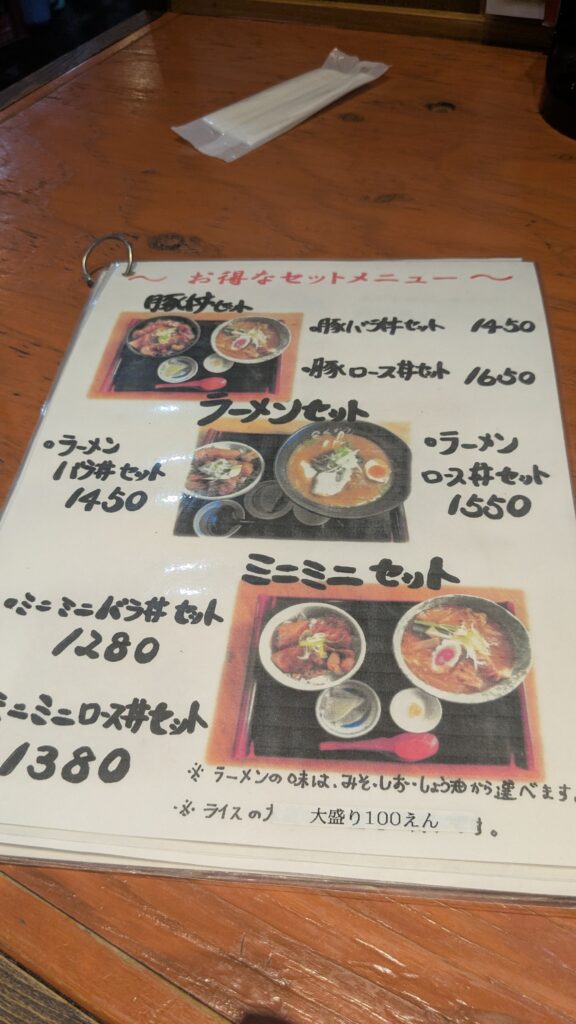 ～ お得なセットメニュー ～
豚丼セット
・豚バラ丼セット 1450
・豚ロース丼セット 1650
ラーメンセット
・ラーメン
バラ丼セット
1450
・ラーメン
ロース丼セット
1550
ミニミニセット
・ミニミニバラ丼セット
1280
ミニミニロース丼セット
1380
※ ラーメンの味は、みそ・しお・しょう油から選べます。
※ ライスの 大盛り100えん す。